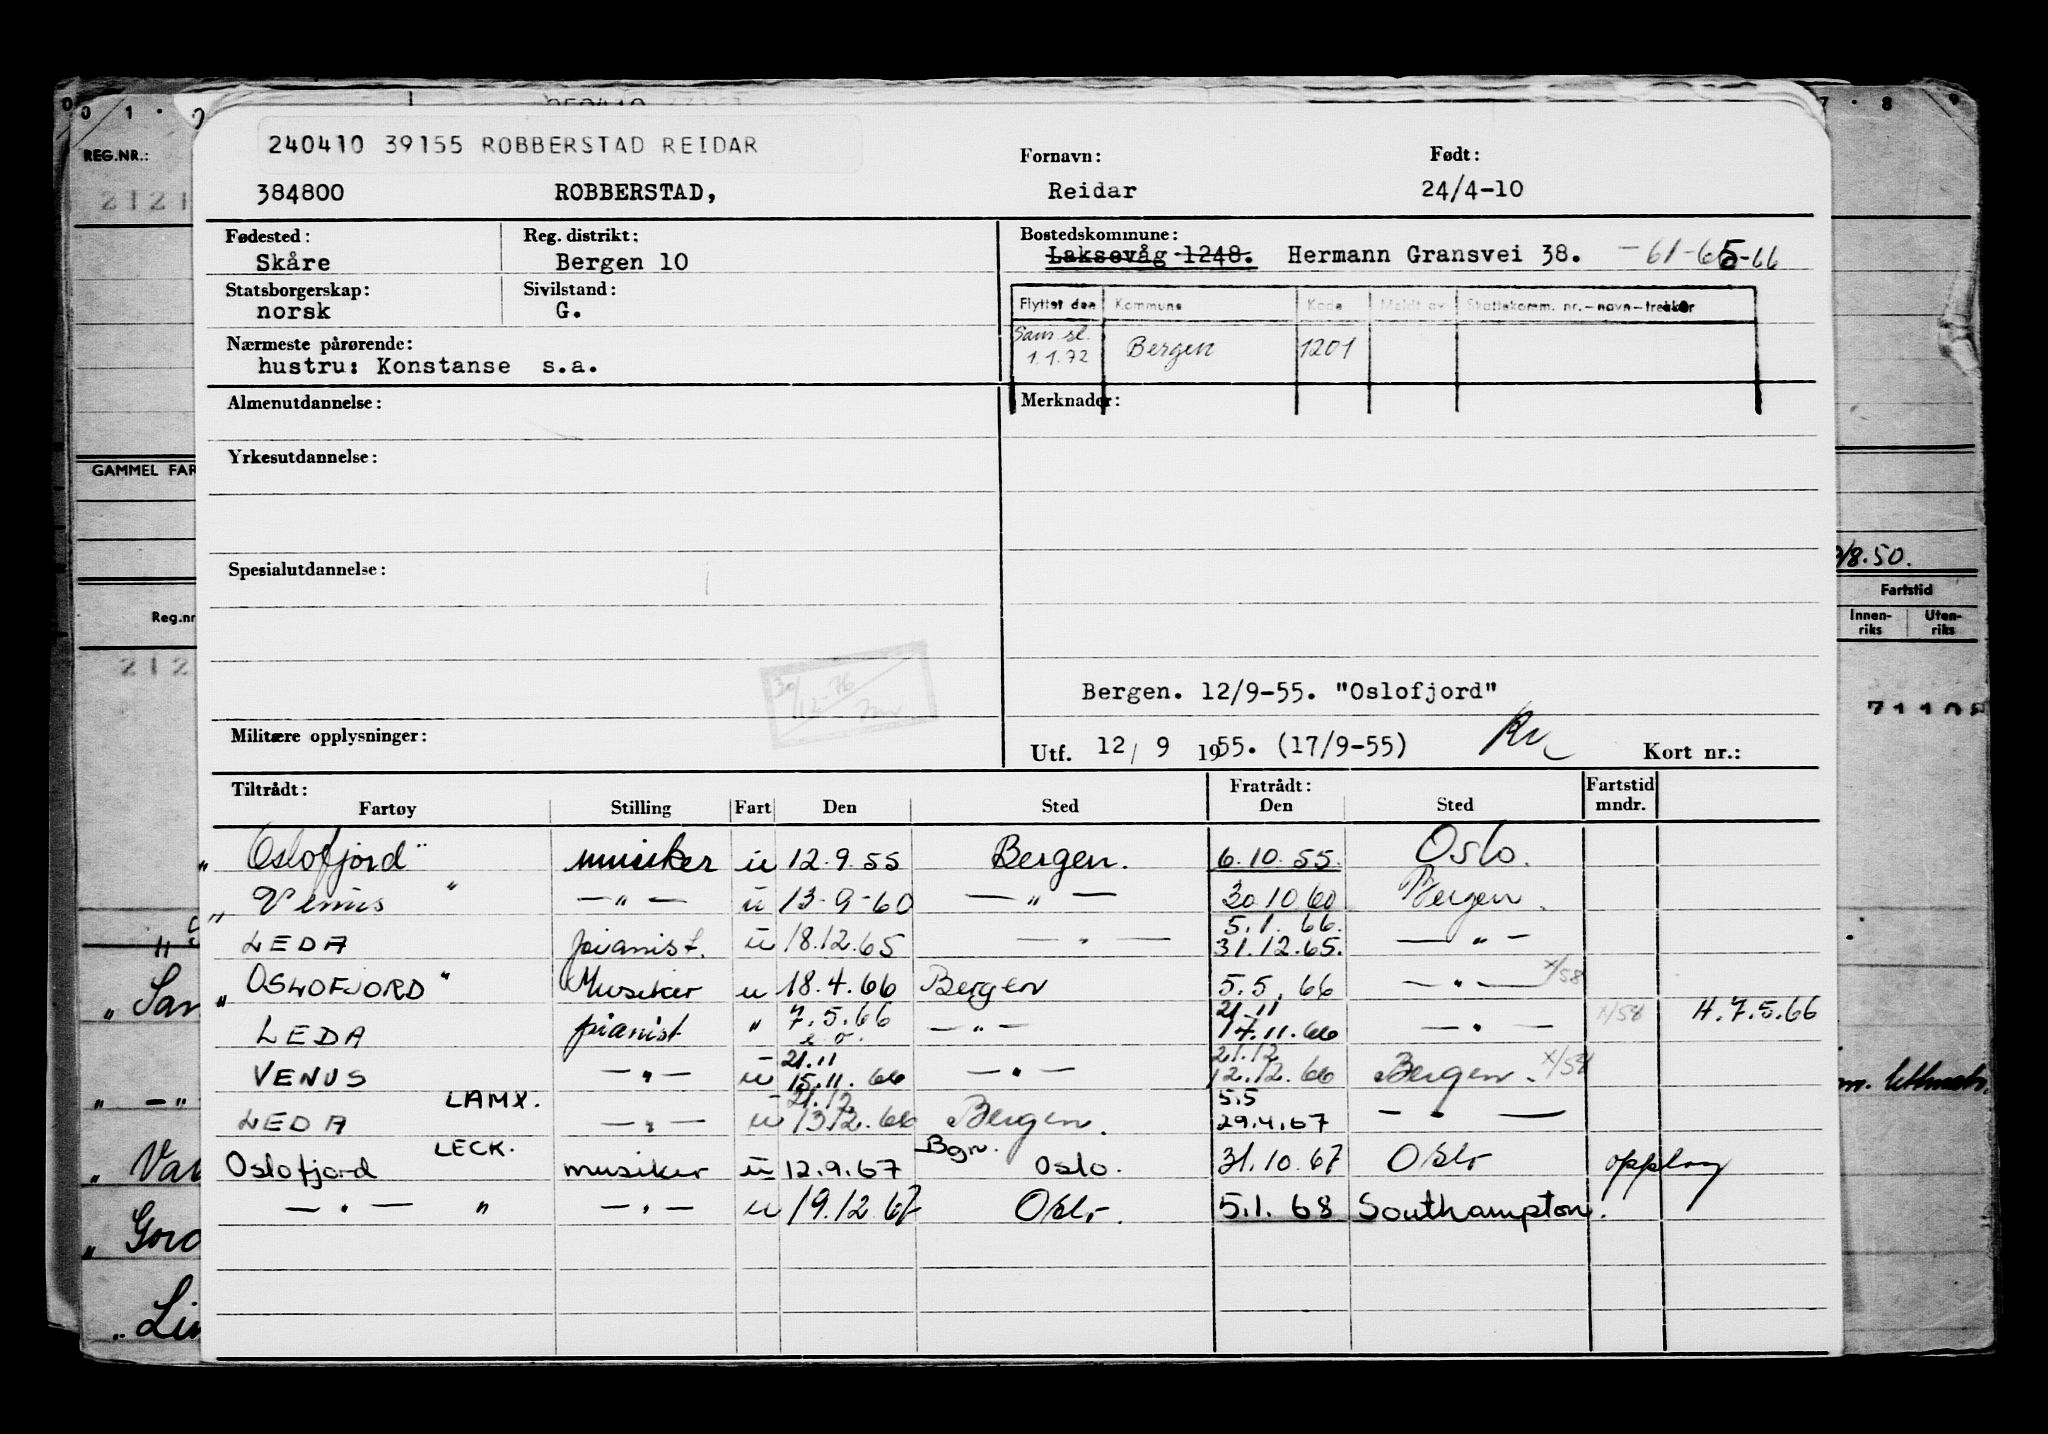 240410 39155 ROBBERSTAD REIDAR
REG.NR.:
Fornavn: Født:
384800 ROBBERSTAD, Reidar 24/4-10
Fødested: Reg. distrikt: Bostedskommune:
Skåre Bergen 10 Laksevåg 1248. Hermann Gransvei 38. -61-65-66
Statsborgerskap: Sivilstand:
norsk G.
Flyttet den Kommune Kode Meldt av Skattekomm. nr.-navn-trekker
Sam.sl. 1.1.72 Bergen 1201
Nærmeste pårørende:
hustru: Konstanse s.a.
Almenutdannelse: Merknader:
Yrkesutdannelse:
GAMMEL FAR
Spesialutdannelse:
/8.50.
Fartstid
Innen-riks Uten-riks
Reg.nr
212
30/12-76
Bergen. 12/9-55. "Oslofjord"
Militære opplysninger:
Utf. 12/ 9 1955. (17/9-55) Kort nr.:
Tiltrådt: Fratrådt: Fartstid
Fartøy Stilling Fart Den Sted Den Sted mndr.
"Oslofjord" musiker u 12.9.55 Bergen. 6.10.55. Oslo.
"Venus" —"— u 13-9-60 —"— 30.10.60 Bergen.
5.1.66.
LEDA pianist. u 18.12.65 —"— 31.12.65. —"—
"OSLOFJORD" Musiker u 18.4.66 Bergen 5.5.66 —"— x/58
7.5.66 21.11
LEDA pianist " —"— 17.11.66 —"— x/58 H.7.5.66
21.11 21.12
VENUS —"— u 15.11.66 —"— 12.12.66 Bergen. x/58
LAMX. 21.12 5.5
LEDA —"— u 13.12.66 Bergen. 29.4.67 —"—
LECK. Bgn.
Oslofjord musiker u 12.9.67 Oslo. 31.10.67 Oslo opplag
—"— " —"— u 19.12.67 Oslo. 5.1.68 Southampton.